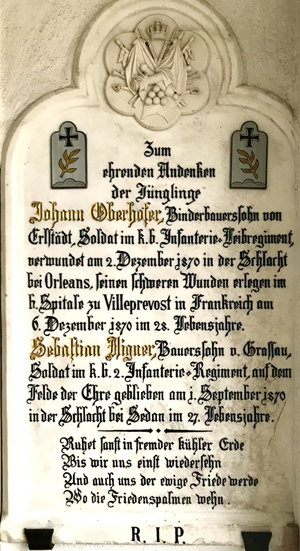 Zum
ehrenden Andenken
der Jünglinge
Johann Oberhofer, Binderbauerssohn von
Erlstädt, Soldat im k. b. Infanterie-Leibregiment,
verwundet am 2. Dezember 1870 in der Schlacht
bei Orleans, seinen schweren Wunden erlegen im
k. Spitale zu Villeprevost in Frankreich am
6. Dezember 1870 im 28. Lebensjahre.
Sebastian Aigner, Bauerssohn v. Grassau,
Soldat im k. b. 2. Infanterie-Regiment, auf dem
Felde der Ehre geblieben am 1. September 1870
in der Schlacht bei Sedan im 27. Lebensjahre.
Ruhet sanft in fremder kühler Erde
Bis wir uns einst wiedersehn
Und auch uns der ewige Friede werde
Wo die Friedenspalmen wehn.
R. I. P.